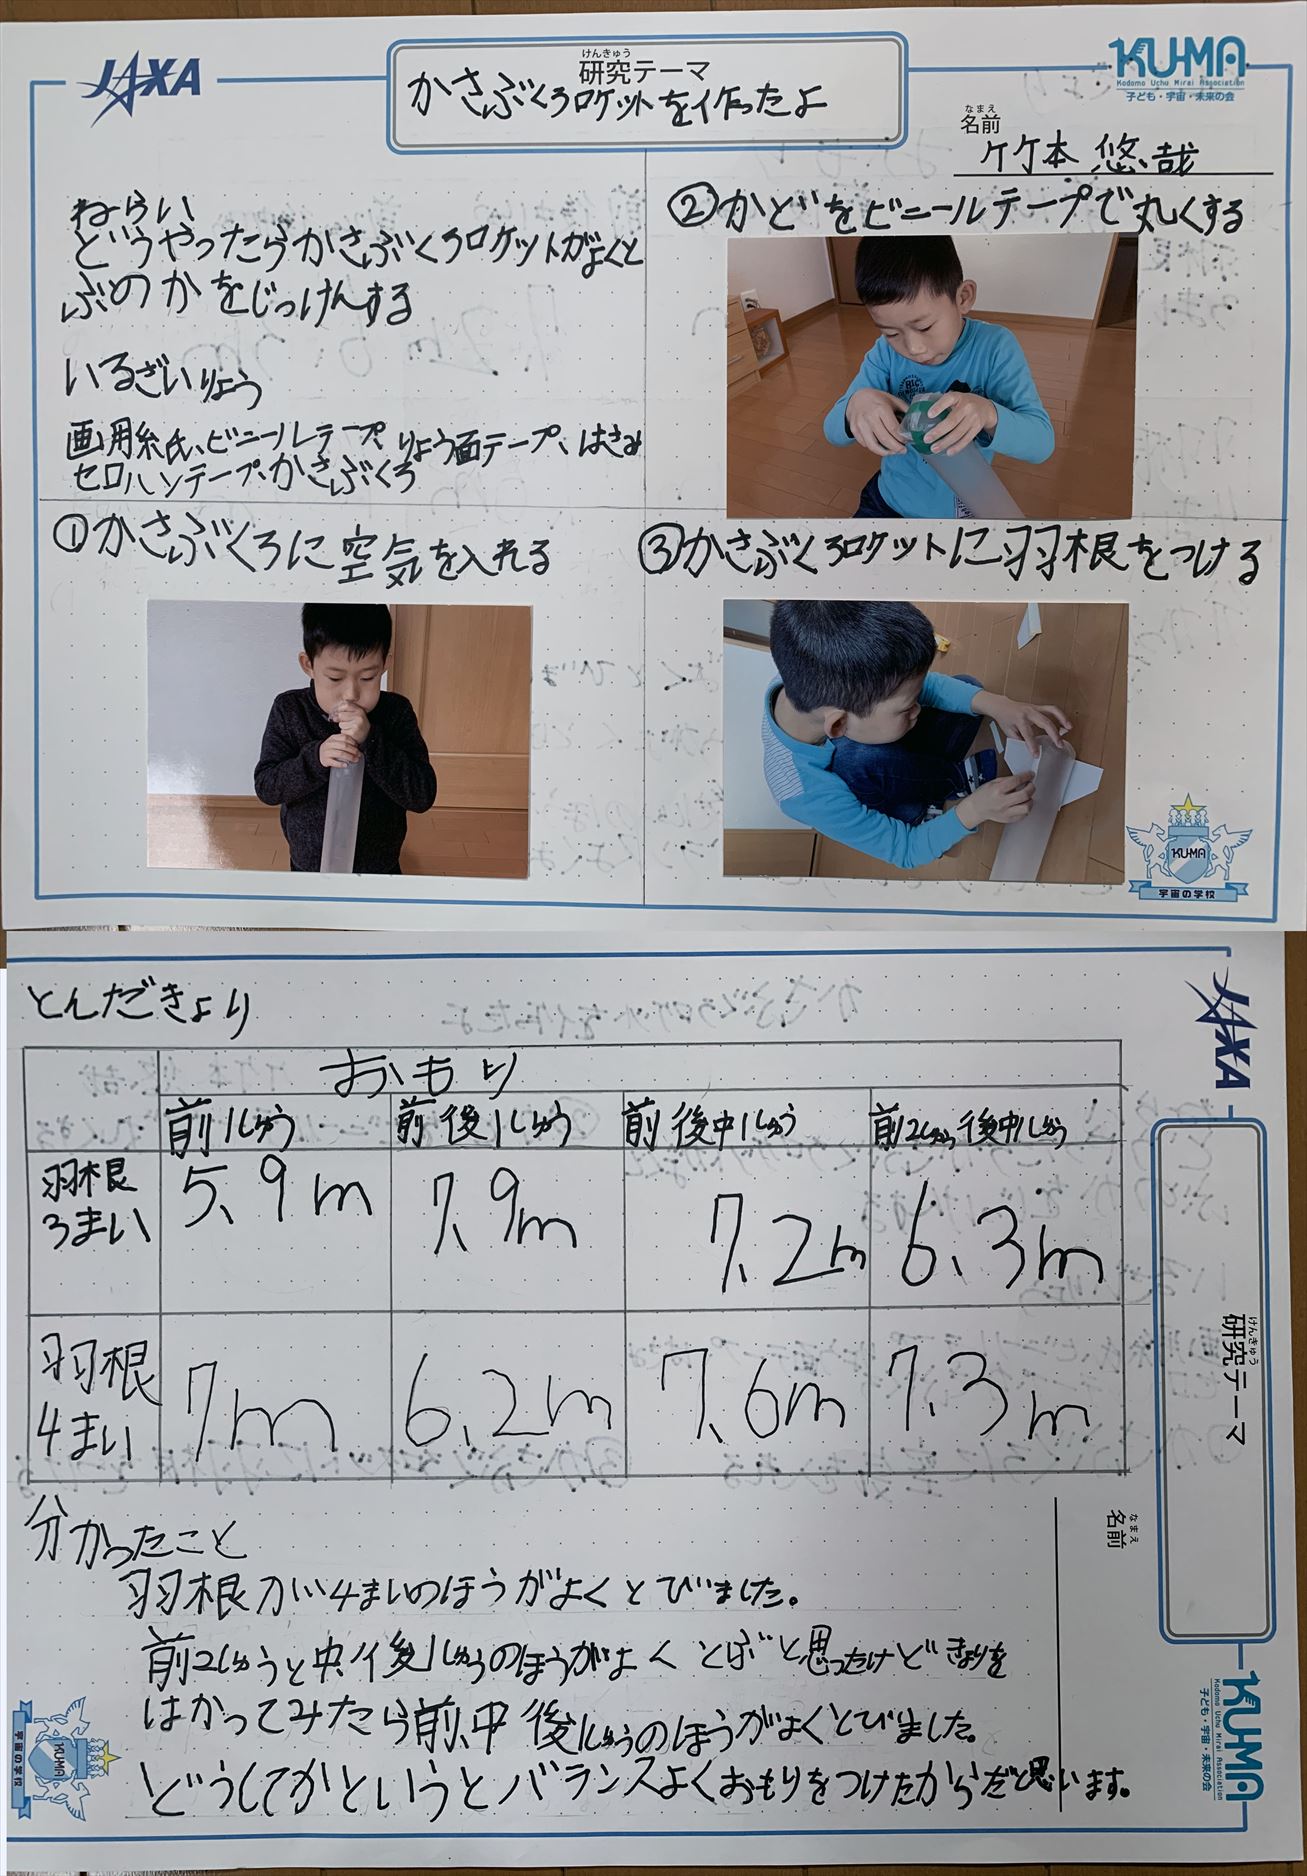 JAXA
けんきゅう
研究テーマ
かさぶくろロケットを作ったよ
KU-MA
Kodomo Uchu Mirai Association
子ども・宇宙・未来の会
なまえ
名前
竹本 悠哉
ねらい
どうやったらかさぶくろロケットがよくと
ぶのかをじっけんする
いるざいりょう
画用紙、ビニールテープ、りょう面テープ、はさみ
セロハンテープ、かさぶくろ
①かさぶくろに空気を入れる
②かどをビニールテープで丸くする
③かさぶくろロケットに羽根をつける
KU-MA
宇宙の学校
とんだきょり
おもり
前1しゅう 前後1しゅう 前後中1しゅう 前2しゅう後中1しゅう
羽根3まい 5.9m 7.9m 7.2m 6.3m
羽根4まい 7m 6.2m 7.6m 7.3m
分かったこと
羽根が4まいのほうがよくとびました。
前2しゅうと中、後1しゅうのほうがよくとぶと思ったけどきょりを
はかってみたら前、中、後1しゅうのほうがよくとびました。
どうしてかというとバランスよくおもりをつけたからだと思います。
JAXA
けんきゅう
研究テーマ
なまえ
名前
KU-MA
Kodomo Uchu Mirai Association
子ども・宇宙・未来の会
KU-MA
宇宙の学校